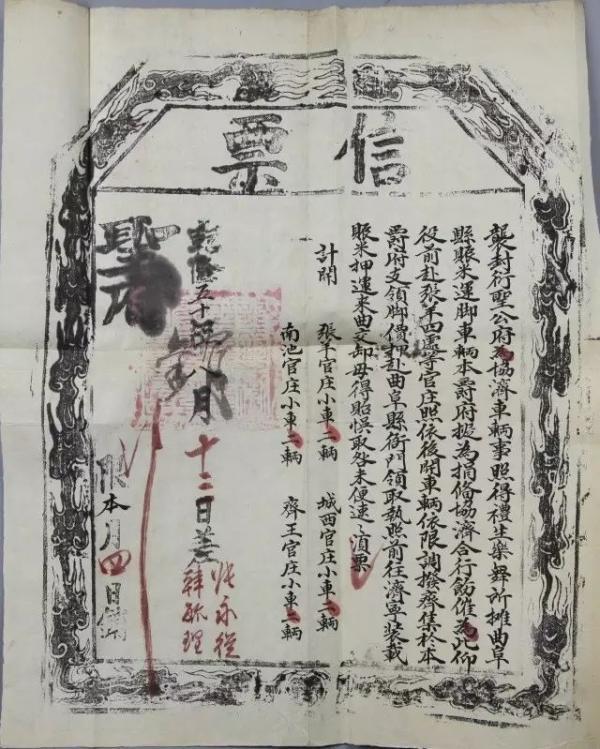 信票
襲封衍聖公府為協濟車輛事照得禮生樂舞所攤曲阜
縣賑米運脚車輛本爵府擬為捐僱協濟合行飭催為此仰
役前赴張羊四處等官庄照依後開車輛依限調撥齊集於本
爵府支領脚價押赴曲阜縣衙門領取執照前往濟寧裝載
賑米押運来曲交卸毋得貽悞取咎未便速速須票
計開
張羊官庄小車二輛　城西官庄小車二輛
南池官庄小車二輛　齊王官庄小車二輛
乾隆五十年八月十二日差
張永從
韓
限本月四日銷